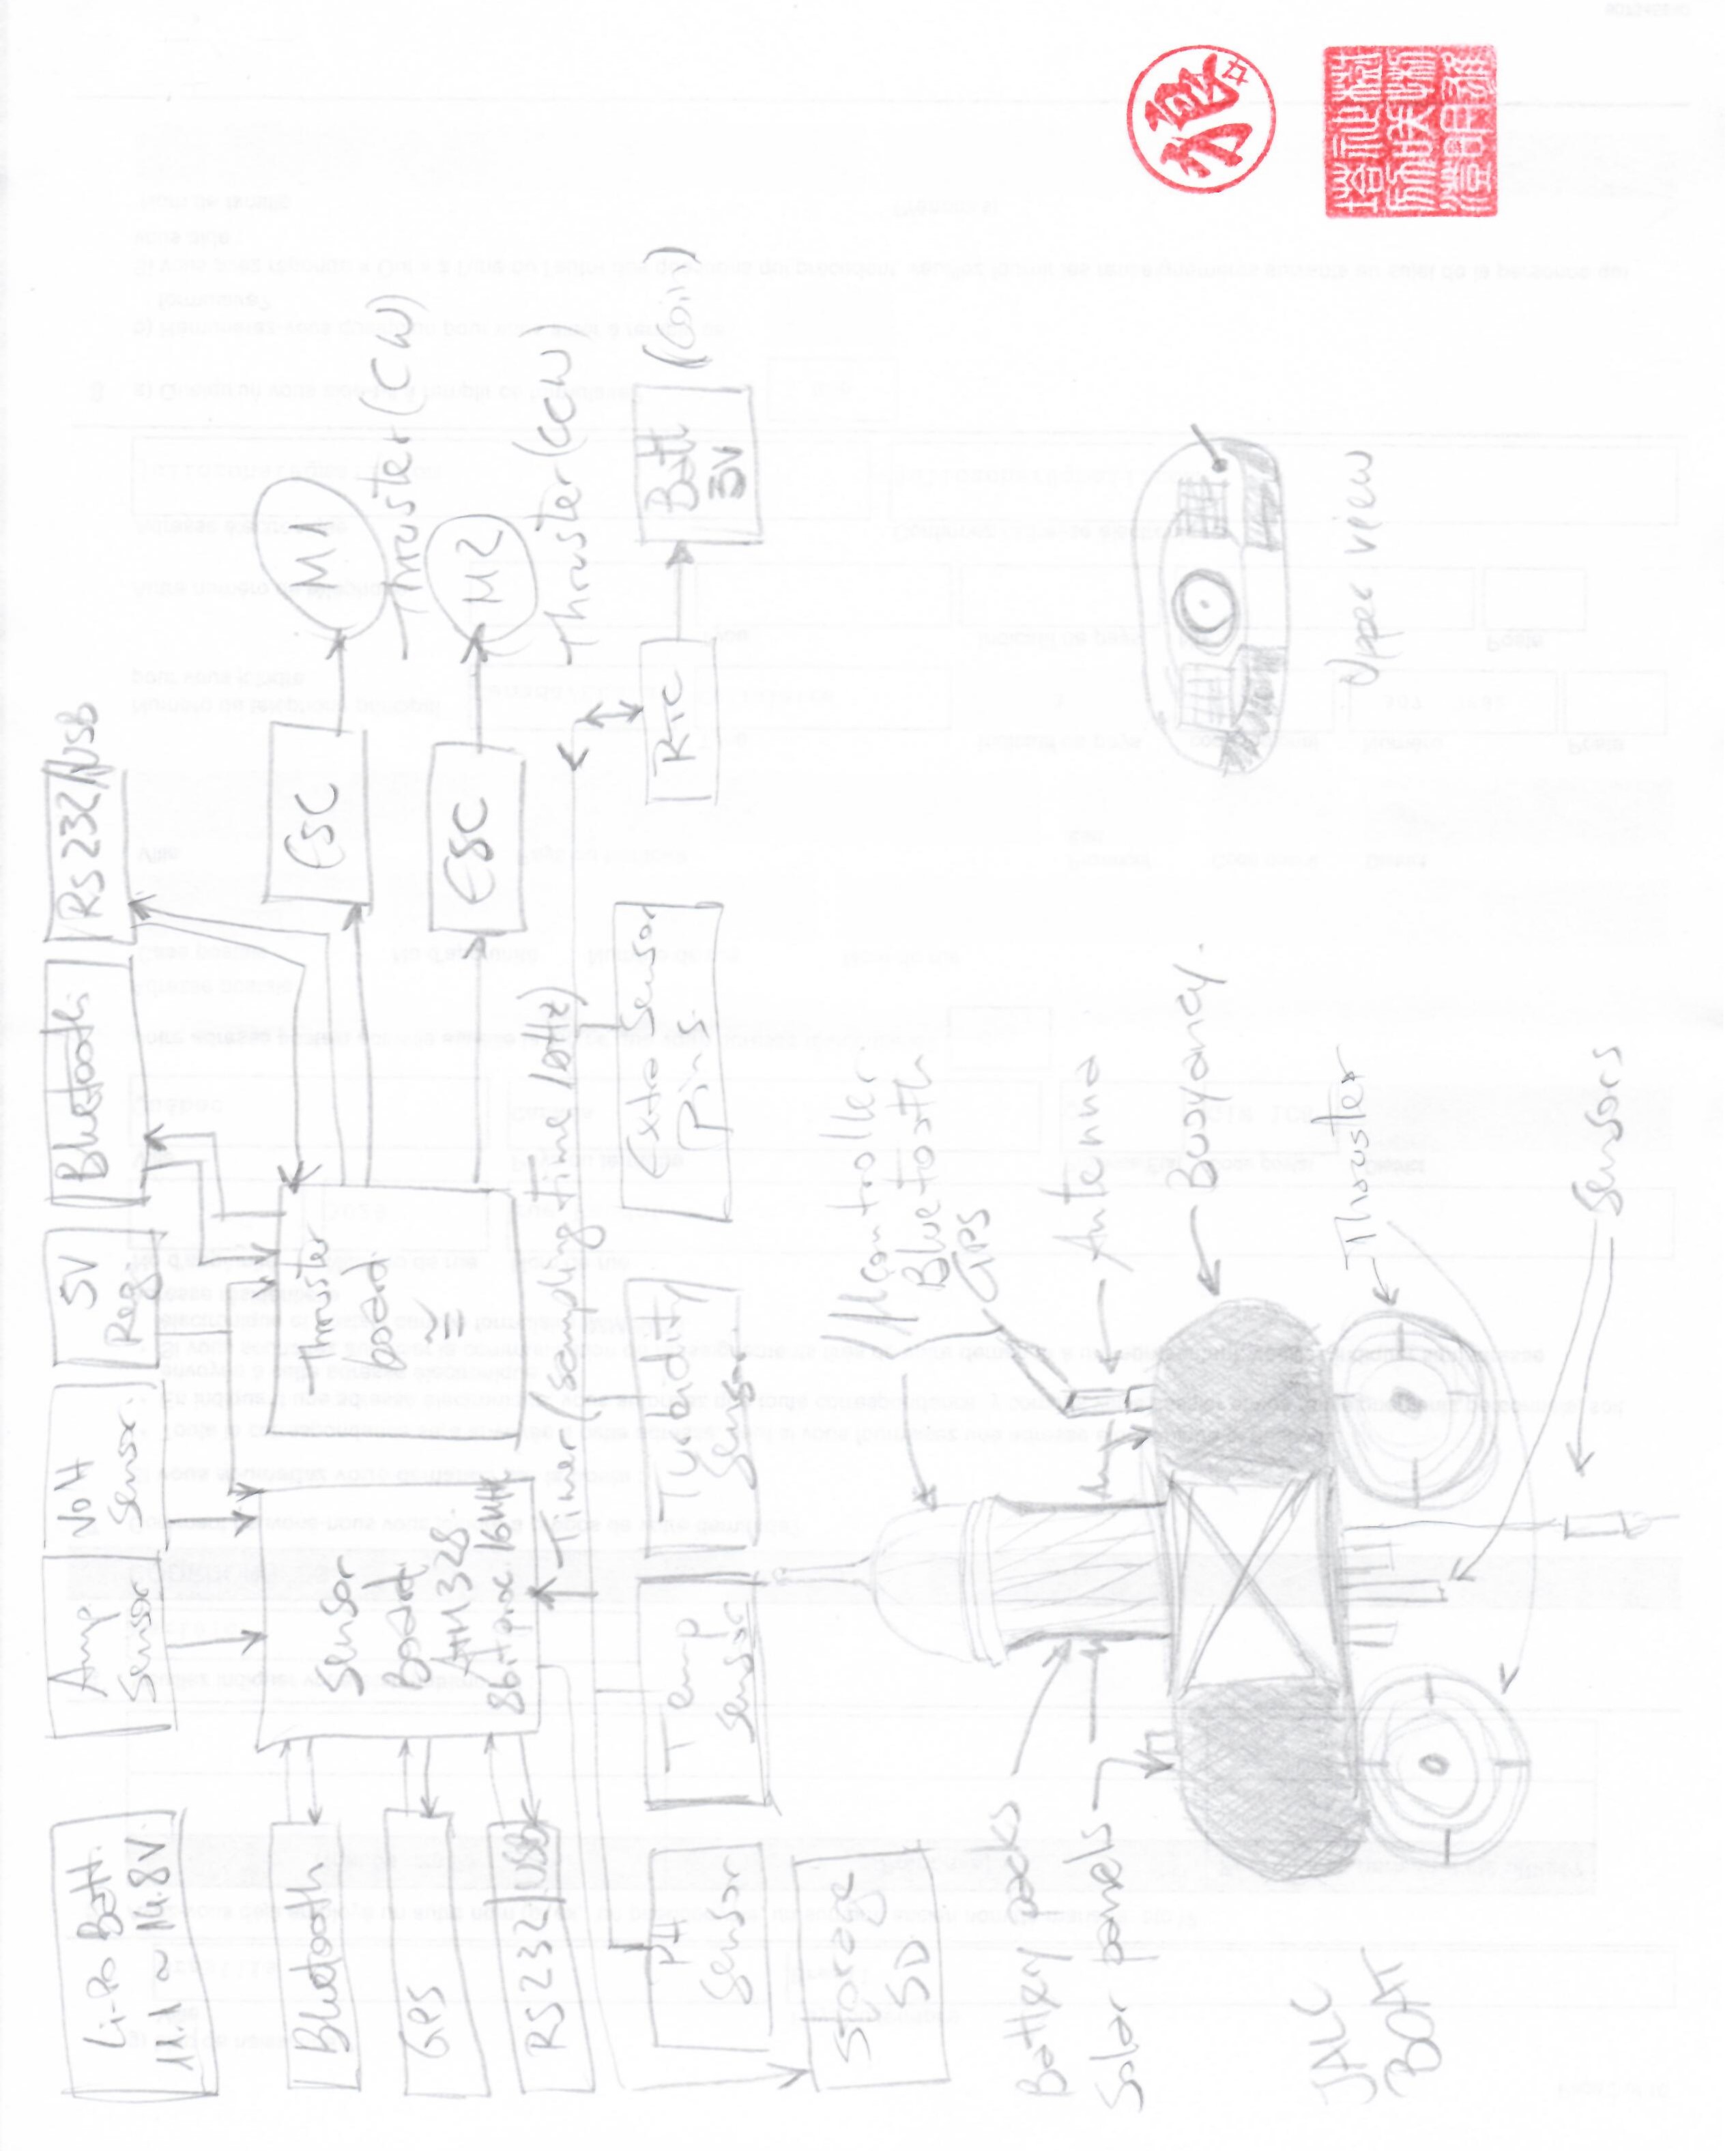 Li-Po Batt.
11.1 ~ 14.8V
Amp
Sensor
Volt
Sensor.
5V
Reg.
Bluetooth
RS232/USB
Bluetooth
GPS
RS232/USB
Sensor
Board
ATM328
8bit proc. 16MHz
Thruster
board
≅
ESC
M1
Thruster (CW)
ESC
M2
Thruster (CCW)
Timer (sampling time 10Hz)
PH
Sensor
Temp
Sensor
Turbidity
Sensor.
Extra Sensor
Pins
RTC
Batt
3V
(Coin)
Storage
SD
μcontroller
Bluetooth
GPS
Battery packs
Solar panels
Antenna
Buoyancy.
JALC
BOAT
Thruster
Sensors
Upper view
狼